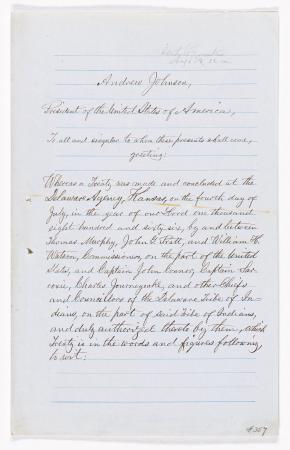 Andrew Johnson,
President of the United States of America,
To all and singular to whom these presents shall come,
greeting:
Whereas a Treaty was made and concluded at the
Delaware Agency, Kansas, on the fourth day of
July, in the year of our Lord one thousand
eight hundred and sixty-six, by and between
Thomas Murphy, John G. Pratt, and William H.
Watson, Commissioners, on the part of the United
States, and Captain John Conner, Captain Sar-
coxie, Charles Journeycake, and other Chiefs
and Councilors of the Delaware Tribe of In-
dians, on the part of said Tribe of Indians,
and duly authorized thereto by them, which
Treaty is in the words and figures following
to wit:
#357